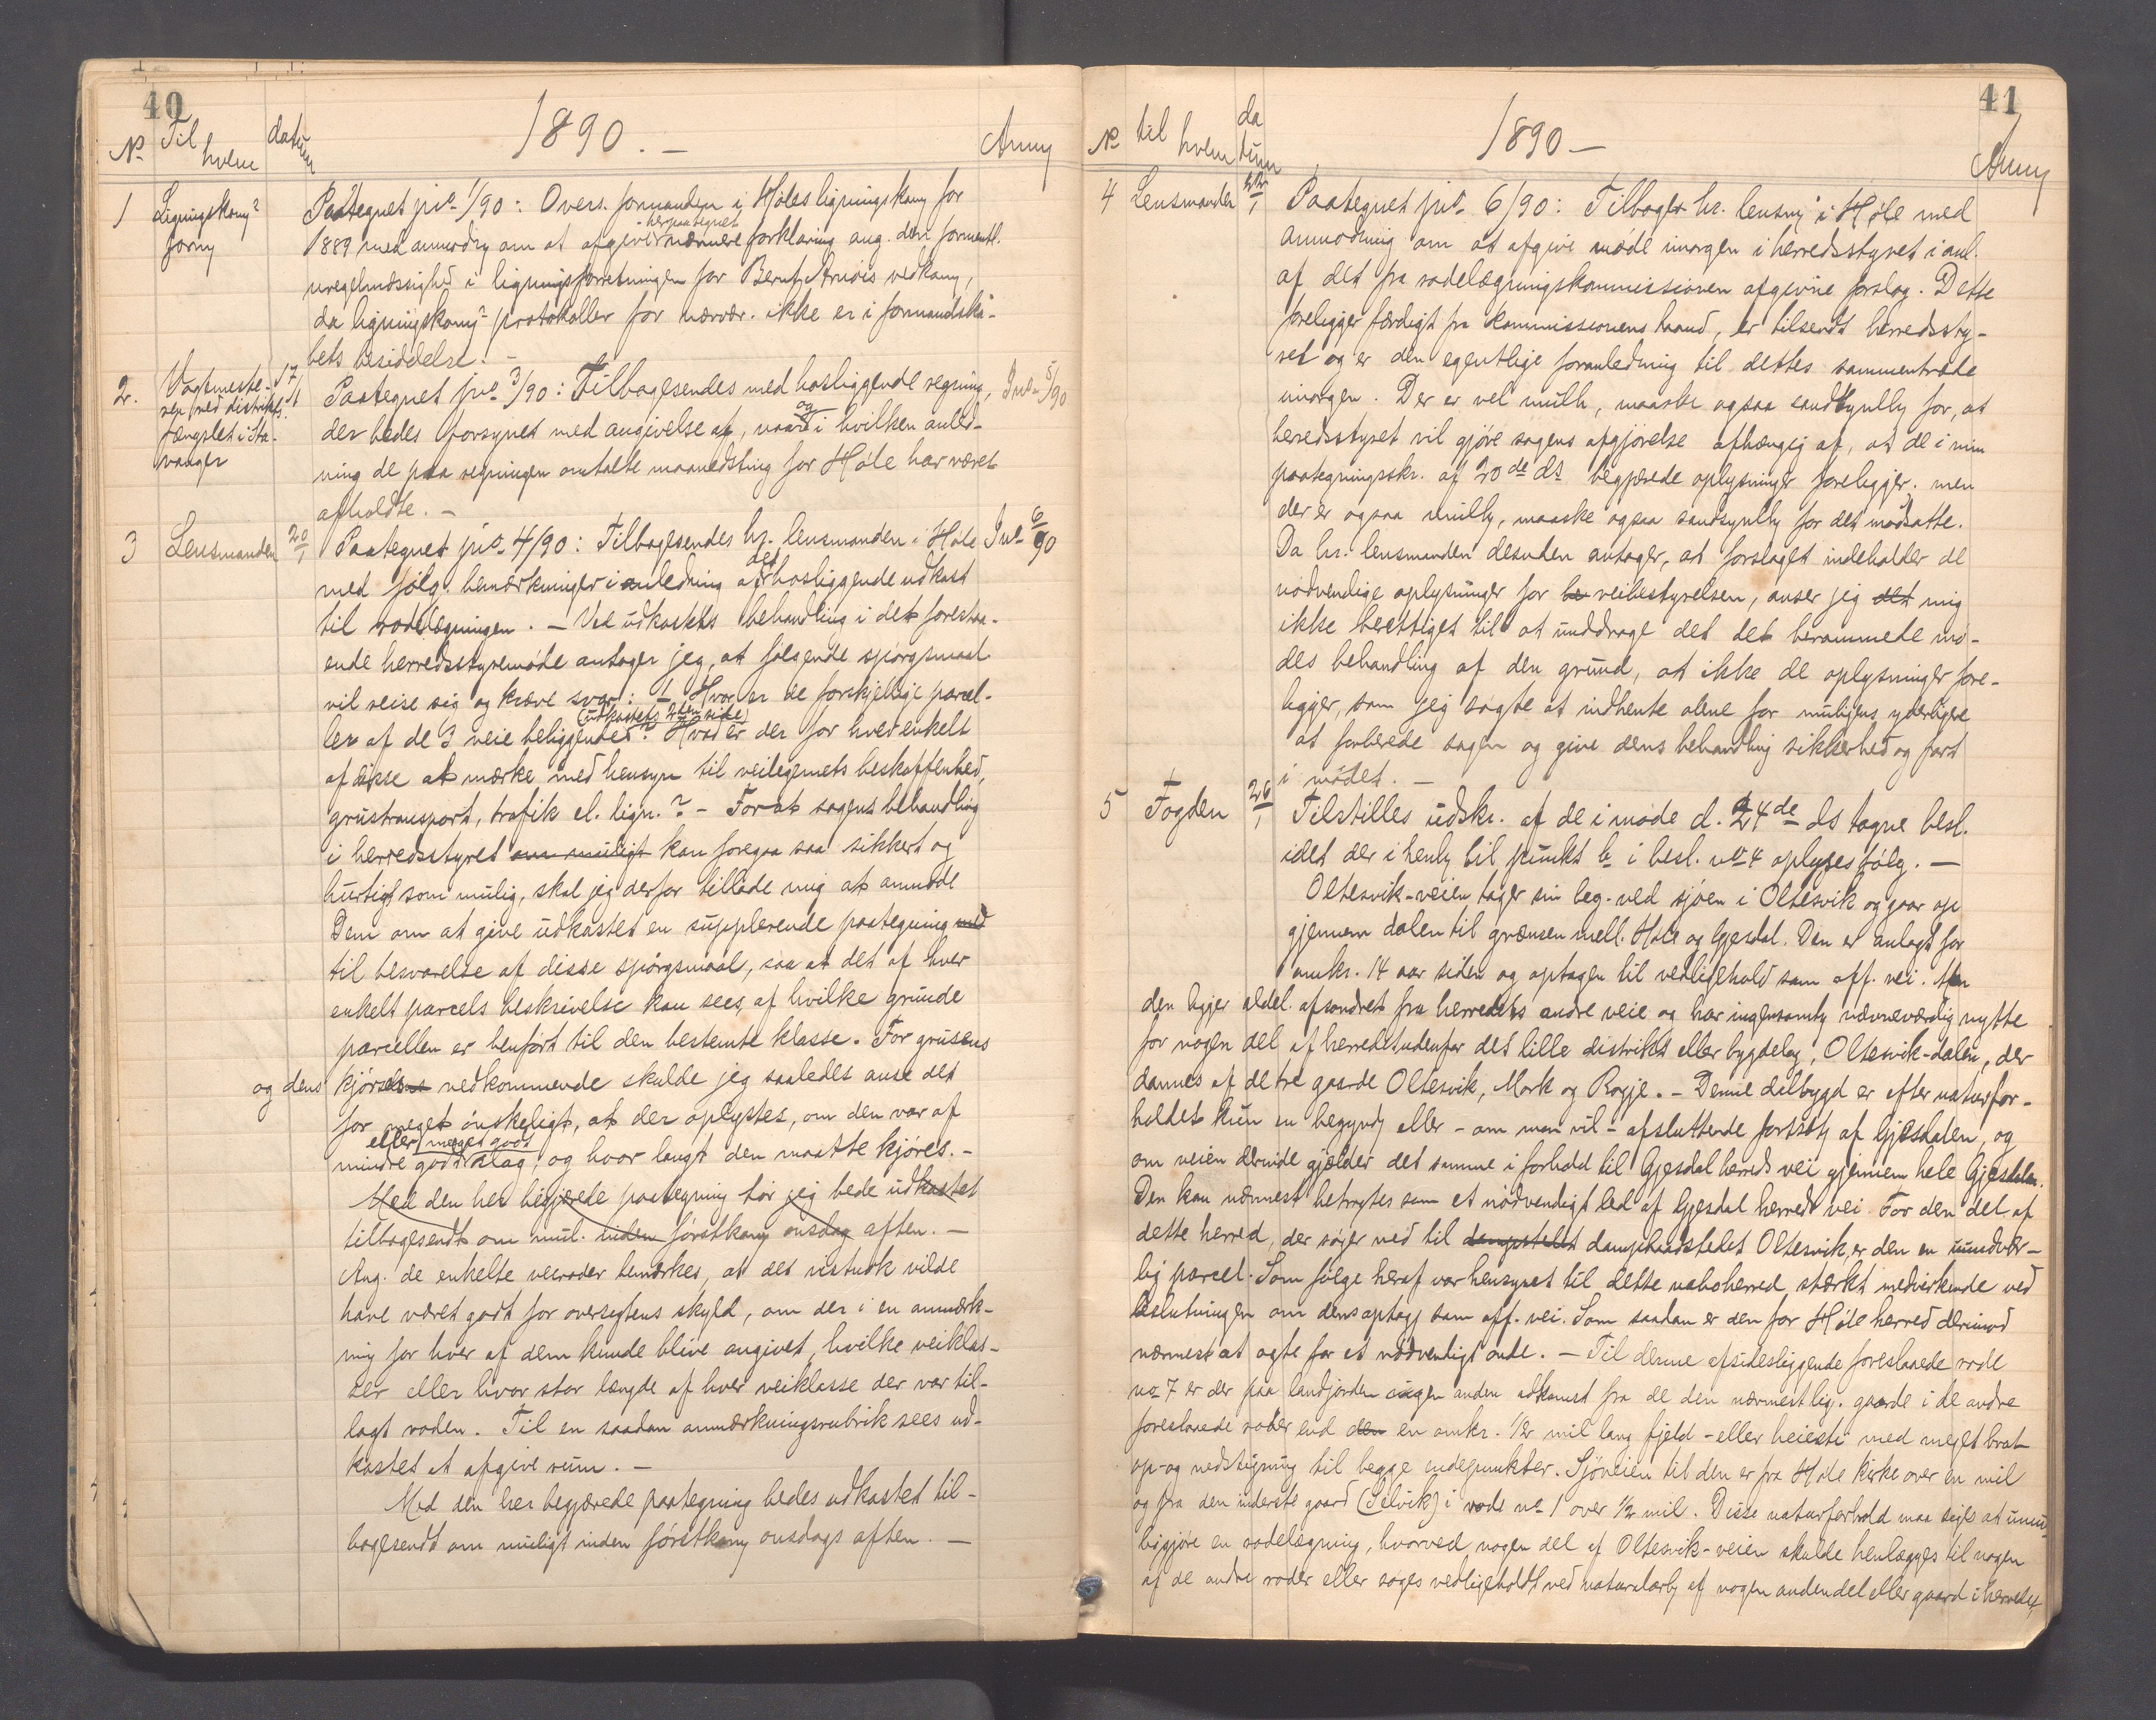 40
No Til hvem datum 1890. — Anm
1 Ligningskom: form
Paategnet jno 1/90: Overs. formanden i Höles ligningskom for
1889 med anmodng om at afgive herpaategnet nærmere forklaring ang. den formentl.
uregelmæssighed i ligningsforretningen for vedkom,
da ligningskom: protokoller for nærvær. ikke er i formandska-
bets besiddelse. —
2. Vagtmeste-
ren ved distrikts-
fængslet i Sta-
vanger
17/1
Paategnet jno 3/90: Tilbagesendes med hosliggende regning, Jno 5/90
der bedes forsynet med angivelse af, naar og i hvilken anled-
ning de paa regningen omtalte maanedsting for Höle har været
afholdte. —
3 Lensmanden 20/1 Paategnet jno 4/90: Tilbagesendes hr. lensmanden i Höle Jno 6/90
med fölg. bemærkninger i anledning af det hosliggende udkast
til rodelægningen. — Ved udkastets behandling i det forestaa-
ende herredsstyremöde antager jeg, at fölgende spörgsmaal
vil reise sig og kræve svar: 1 Hvor er de forskjellige parcel-
ler af de 3 veie beliggende (udkastets 2den side)? Hvad er der for hver enkelt
af disse at mærke med hensyn til veilegemets beskaffenhed,
grustransport, trafik el. lign.? — Forat sagens behandling
i herredsstyret om muligt kan foregaa saa sikkert og
hurtigt som mulig, skal jeg derfor tillade mig at anmode
Dem om at give udkastet en supplerende paategning med
til besvarelse af disse spörgsmaal, saa at det af hver
enkelt parcels beskrivelse kan sees, af hvilke grunde
parcellen er henfört til den bestemte klasse. For grusens
og dens kjörselens vedkommende skulde jeg saaledes anse det
for meget önskeligt, at der oplystes, om den var af
mindre godt eller meget godt slag, og hvor langt den maatte kjöres. —
Med den her begjærede paategning tör jeg bede udkastet
tilbagesendt om mul. inden förstkom onsdag aften. —
Ang. de enkelte veiroder bemærkes, at det vistnok vilde
have været godt for oversigtens skyld, om der i en anmærk-
ning for hver af dem kunde blive angivet, hvilke veiklas-
ser eller hvor stor længde af hver veiklasse der var til-
lagt roden. Til en saadan anmærkningsrubrik sees ud-
kastet at afgive rum. —
Med den her begjærede paategning bedes udkastet til-
bagesendt om muligt inden förstkom onsdags aften. —
41
No til hvem datum 1890 — Anm
4 Lensmanden 22/1 Paategnet jno 6/90: Tilbage hr. lensm i Höle med
anmodning om at afgive möde imorgen i herredsstyret i anl.
af det fra rodelægningskommissionen afgivne forslag. Dette
foreligger færdigt fra kommissionens haand, er tilsendt herredssty-
ret og er den egentlige foranledning til dettes sammentræde
imorgen. Der er vel mulh, maaske ogsaa sandsynlh for, at
herredsstyret vil gjöre sagens afgjörelse afhængig af, at de i min
paategningsskr. af 20de ds begjærede oplysninger foreligger, men
der er ogsaa mulh, maaske ogsaa sandsynlh for det modsatte.
Da hr. lensmanden desuden antager, at forslaget indeholder de
nödvendige oplysninger for be veibestyrelsen, anser jeg det mig
ikke berettiget til at unddrage det det berammede mö-
des behandling af den grund, at ikke de oplysninger fore-
ligger, som jeg sögte at indhente alene for muligens yderligere
at forberede sagen og give dens behandling sikkerhed og fart
i mödet. —
5 Fogden 26/1 Tilstilles udskr. af de i möde d. 24de ds tagne besl.
idet der i henh til punkt b i besl. no 4 oplyses fölg. —
Oltesvik-veien tager sin beg. ved sjöen i Oltesvik og gaar op
gjennem dalen til grænsen mell. Höle og Gjesdal. Den er anlagt for
omkr. 14 aar siden og optagen til vedligehold som off. vei. Men
den ligger aldel. afsondret fra herredets andre veie og har ingensomh nævneværdig nytte
for nogen del af herredet udenfor det lille distrikt eller bygdelag, Oltesvik-dalen, der
dannes af de tre gaarde Oltesvik, Mork og Røgje. — Denne dalbygd er efter naturfor-
holdet kun en begyndl eller – om man vil – afsluttende forts af Gjesdalen, og
om veien dernede gjælder det samme i forhold til Gjesdal herreds vei gjennem hele Gjesdalen.
Den kan nærmest betragtes som et nödvendigt led af Gjesdal herreds vei. For den del af
dette herred, der söger ned til dampskibsanlöbsstedet Oltesvik, er den en uundvær-
lig parcel. Som fölge heraf var hensynet til dette naboherred stærkt medvirkende ved
beslutningen om dens optag som off. vei. Som saadan er den for Höle herred derimod
nærmest at agte for et nödvendigt onde. — Til denne afsidesliggende foreslaaede rode
no 7 er der paa landjorden ingen anden adkomst fra de den nærmest lig. gaarde i de andre
foreslaaede roder end den en omkr. 1/2 mil lang fjeld- eller heiesti med meget brat
op- og nedstigning til begge endepunkter. Sjöveien til den er fra Höle kirke over en mil
og fra den inderste gaard (Selvik) i rode no 1 over 1/2 mil. Disse naturforhold maa siges at umu-
liggjöre en rodelægning, hvorved nogen del af Oltesvik-veien skulde henlægges til nogen
af de andre roder eller söges vedligeholdt ved naturalarb af nogen anden del eller gaard i herredet,